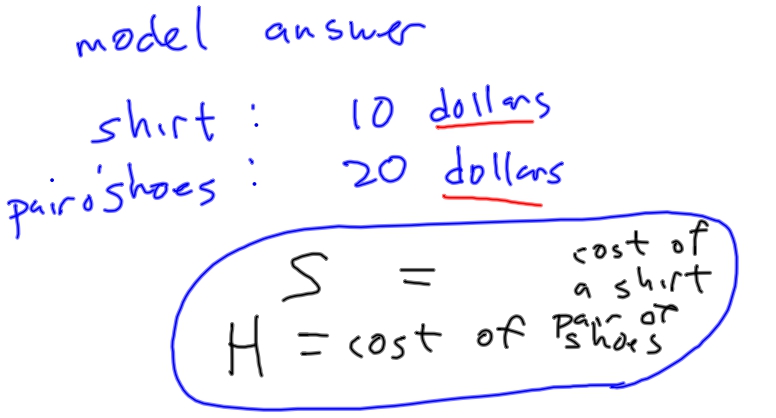 model answer
shirt : 10 dollars
pair o' shoes : 20 dollars
S = cost of a shirt
H = cost of pair of shoes